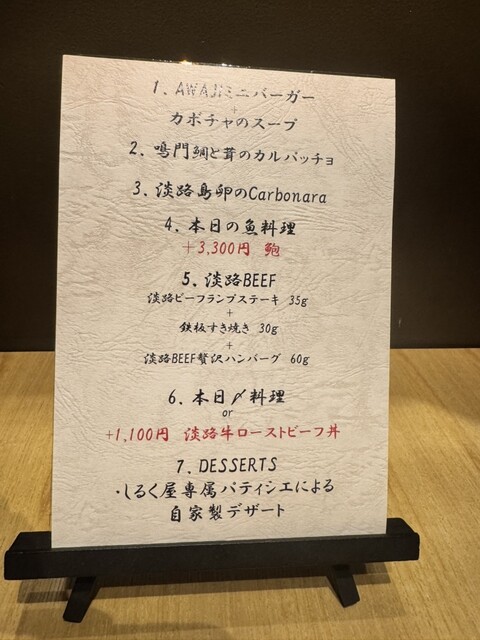 1、AWAJIミニバーガー
+
カボチャのスープ
2、鳴門鯛と茸のカルパッチョ
3、淡路島卵のCarbonara
4、本日の魚料理
+3,300円 鮑
5、淡路BEEF
淡路ビーフランプステーキ 35g
+
鉄板すき焼き 30g
+
淡路BEEF贅沢ハンバーグ 60g
6、本日〆料理
or
+1,100円 淡路牛ローストビーフ丼
7、DESSERTS
・しるく屋専属パティシエによる
自家製デザート